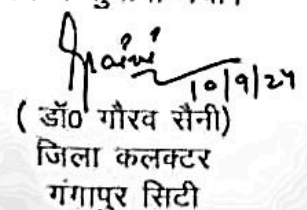 10/9/24
( डॉ0 गौरव सैनी)
जिला कलक्टर
गंगापुर सिटी